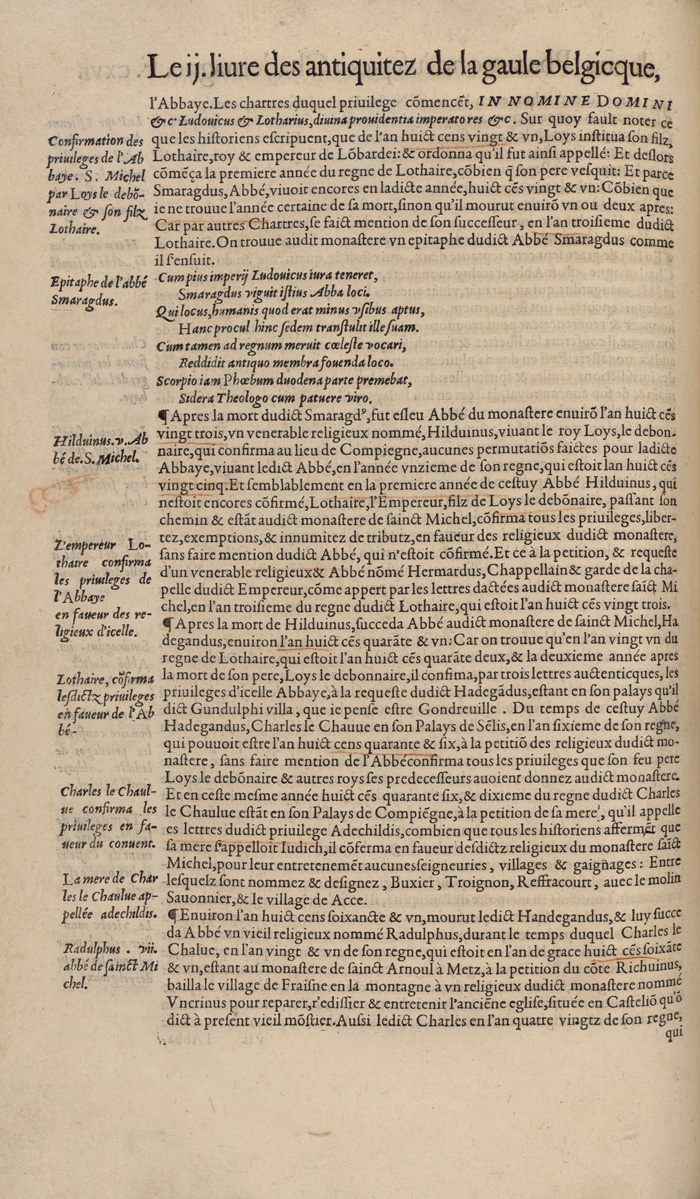 Le ij. liure des antiquitez de la gaule belgicque,
l'Abbaye. Les chartres duquel priuilege cõmencẽt, IN NOMINE DOMINI
&c. Ludouicus & Lotharius, diuina prouidentia imperatores &c. Sur quoy fault noter ce
que les historiens escripuent, que de l'an huict cens vingt & vn, Loys institua son filz,
Lothaire, roy & empereur de Lõbardei: & ordonna qu'il fut ainsi appellé: Et deslors
cõmẽça la premiere année du regne de Lothaire, cõbien q̃ son pere vesquit: Et parce
Smaragdus, Abbé, viuoit encores en ladicte année, huict cẽs vingt & vn: Cõbien que
ie ne trouue l'année certaine de sa mort, sinon qu'il mourut enuirõ vn ou deux apres:
Car par autres Chartres, se faict mention de son successeur, en l'an troisieme dudict
Lothaire. On trouue audit monastere vn epitaphe dudict Abbé Smaragdus comme
il s'ensuit.
Confirmation des
priuileges de l'Ab
baye. S. Michel
par Loys le debõ-
naire & son filz
Lothaire.
Epitaphe de l'abbé
Smaragdus.
Cum pius imperij Ludouicus iura teneret,
Smaragdus viguit istius Abba loci.
Qui locus, humanis quod erat minus vsibus aptus,
Hanc procul hinc sedem transtulit ille suam.
Cum tamen ad regnum meruit cœleste vocari,
Reddidit antiquo membra fouenda loco.
Scorpio iam Phœbum duodena parte premebat,
Sidera Theologo cum patuere viro.
¶ Apres la mort dudict Smaragdꝰ, fut esleu Abbé du monastere enuirõ l'an huict cẽs
vingt trois, vn venerable religieux nommé, Hilduinus, viuant le roy Loys, le debon-
naire, qui confirma au lieu de Compiegne, aucunes permutatiõs faictes pour ladicte
Abbaye, viuant ledict Abbé, en l'année vnzieme de son regne, qui estoit lan huict cẽs
vingt cinq. Et semblablement en la premiere année de cestuy Abbé Hilduinus, qui
nestoit encores cõfirmé, Lothaire, l'Empereur, filz de Loys le debõnaire, passant son
chemin & estãt audict monastere de sainct Michel, cõfirma tous les priuileges, liber-
tez, exemptions, & innumitez de tributz, en faueur des religieux dudict monastere,
sans faire mention dudict Abbé, qui n'estoit cõfirmé. Et ce à la petition, & requeste
d'un venerable religieux & Abbé nõmé Hermardus, Chappellain & garde de la cha-
pelle dudict Empereur, cõme appert par les lettres dactées audict monastere saĩct Mi
chel, en l'an troisieme du regne dudict Lothaire, qui estoit l'an huict cẽs vingt trois.
Hilduinus. v. Ab
bé de. S. Michel.
L'empereur Lo-
thaire confirma
les priuileges de
l'Abbaye
en faueur des re-
ligieux d'icelle.
¶ Apres la mort de Hilduinus, succeda Abbé audict monastere de sainct Michel, Ha
degandus, enuiron l'an huict cẽs quarãte & vn: Car on trouue qu'en l'an vingt vn du
regne de Lothaire, qui estoit l'an huict cẽs quarãte deux, & la deuxieme année apres
la mort de son pere, Loys le debonnaire, il confima, par trois lettres auctenticques, les
priuileges d'icelle Abbaye, à la requeste dudict Hadegãdus, estant en son palays qu'il
dict Gundulphi villa, que ie pense estre Gondreuille. Du temps de cestuy Abbé
Hadegandus, Charles le Chauue en son Palays de Sẽlis, en l'an sixieme de son regne,
qui pouuoit estre l'an huict cens quarante & six, à la petitiõ des religieux dudict mo-
nastere, sans faire mention de l'Abbé confirma tous les priuileges que son feu pere
Loys le debõnaire & autres roys ses predecesseurs auoient donnez audict monastere.
Et en ceste mesme année huict cẽs quarante six, & dixieme du regne dudict Charles
le Chaulue estãt en son Palays de Compiẽgne, à la petition de sa mere, qu'il appelle
es lettres dudict priuilege Adechildis, combien que tous les historiens affermẽt que
sa mere s'appelloit Iudich, il cõferma en faueur desdictz religieux du monastere saĩct
Michel, pour leur entretenemẽt aucunes seigneuries, villages & gaignages: Entre
lesquelz sont nommez & designez, Buxier, Troignon, Reffracourt, auec le molin
Sauonnier, & le village de Acce.
Lothaire, cõfirma
lesdictz priuileges
en faueur de l'Ab
bé-
Charles le Chaul-
ue confirma les
priuileges en fa-
ueur du conuent.
La mere de Char
les le Chaulue ap-
pellée adechildis.
¶ Enuiron l'an huict cens soixancte & vn, mourut ledict Handegandus, & luy succe
da Abbé vn vieil religieux nommé Radulphus, durant le temps duquel Charles le
Chalue, en l'an vingt & vn de son regne, qui estoit en l'an de grace huict cẽs soixãte
& vn, estant au monastere de sainct Arnoul à Metz, à la petition du cõte Richuinus,
bailla le village de Fraisne en la montagne à vn religieux dudict monastere nommé
Vncrinus pour reparer, r'edissier & entretenir l'anciẽne eglise, située en Casteliõ qu'õ
dict à present vieil mõstier. Aussi ledict Charles en l'an quatre vingtz de son regne,
qui
Radulphus . vii.
abbé de sainct Mi
chel.